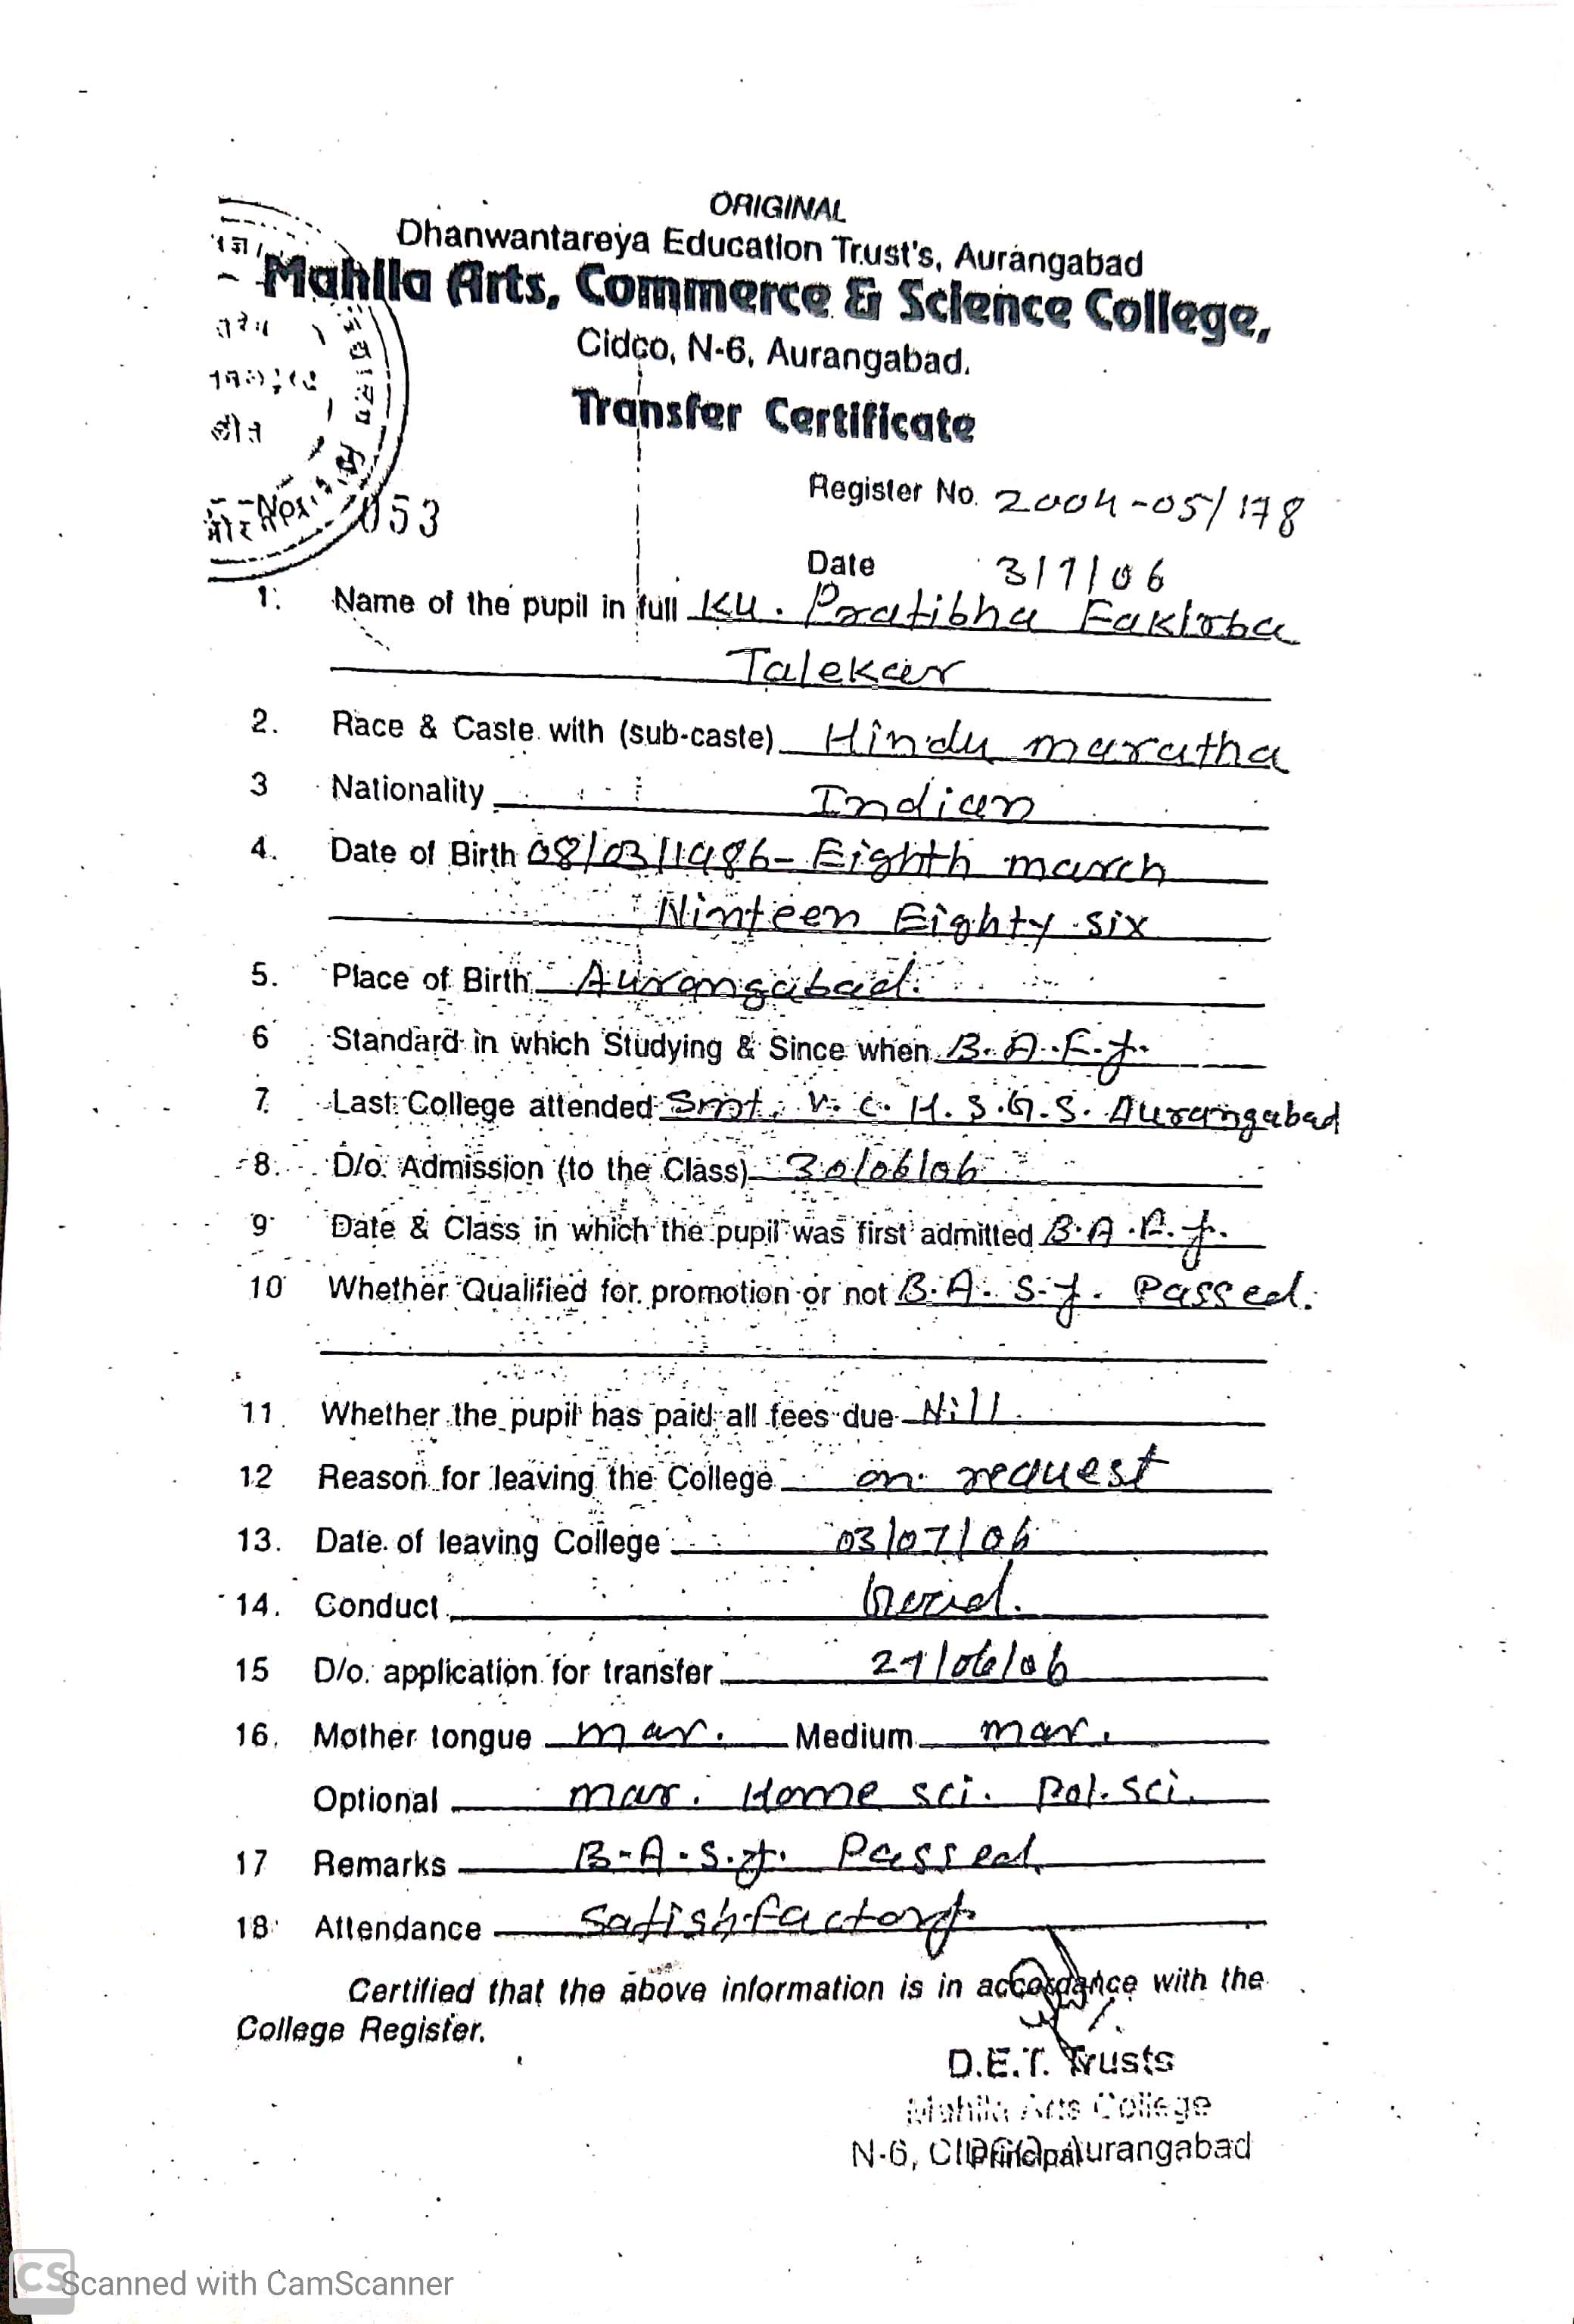 ORIGINAL
Dhanwantareya Education Trust's, Aurangabad
Mahila Arts, Commerce & Science College,
Cidco, N-6, Aurangabad.
Transfer Certificate
Register No. 2004-05/178
No. 053
Date 3/7/06
1. Name of the pupil in full Ku. Pratibha Fakirba
Talekar
2. Race & Caste with (sub-caste) Hindu maratha
3 Nationality Indian
4. Date of Birth 08/03/1986- Eighth march
Ninteen Eighty six
5. Place of Birth Aurangabad.
6 Standard in which Studying & Since when B.A.F.y.
7. Last College attended Smt. V. C. H. S.G.S. Aurangabad
8. D/o. Admission (to the Class) 30/06/06
9 Date & Class in which the pupil was first admitted B.A.F.y.
10 Whether Qualified for promotion or not B.A. S.y. Passed.
11. Whether the pupil has paid all fees due Nill
12 Reason for leaving the College on request
13. Date of leaving College 03/07/06
14. Conduct Good.
15 D/o. application for transfer 21/06/06
16. Mother tongue mar. Medium mar.
Optional mar. Home sci. Pol. sci.
17 Remarks B.A.S.y. Passed.
18 Attendance Satishfactory
Certified that the above information is in accordance with the
College Register.
D.E.T. Trusts
Mahila Arts College
N-6, CIDCO, Aurangabad
Principal
CS Scanned with CamScanner